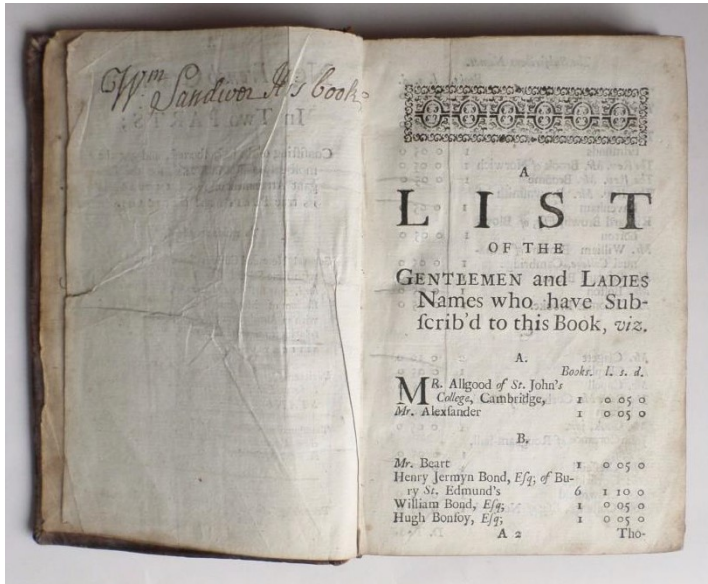 Wm
book
A
LIST
OF THE
GENTLEMEN and LADIES
Names who have Sub-
ſcrib'd to this Book, viz.
A.
Books. l. s. d.
MR. Allgood of St. John's
College, Cambridge, 1 0 05 0
Mr. Alexſander 1 0 05 0
B.
Mr. Beart 1 0 05 0
Henry Jermyn Bond, Eſq; of Bu-
ry St. Edmund's 6 1 10 0
William Bond, Eſq; 1 0 05 0
Hugh Bonfoy, Eſq; 1 0 05 0
A 2 Tho-